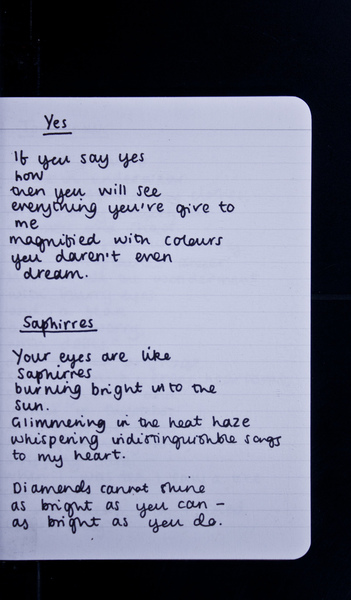 Yes
If you say yes
how
then you will see
everything you've give to
me
magnified with colours
you daren't even
dream.
Saphirres
Your eyes are like
Saphirres
burning bright into the
sun.
Glimmering in the heat haze
whispering indistinguishble songs
to my heart.
Diamends cannot shine
as bright as you can –
as bright as you do.